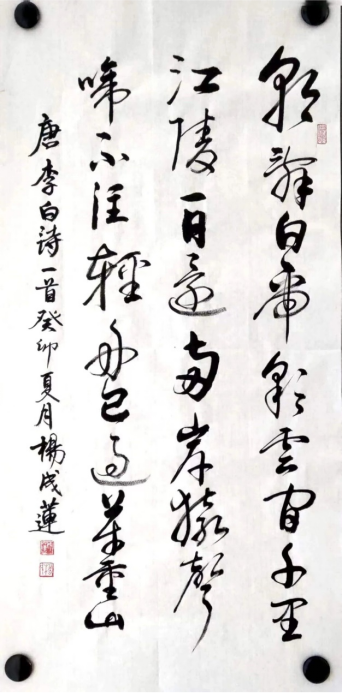 朝辭白帝彩云間千里
江陵一日還兩岸猿聲
啼不住輕舟已過萬重山
唐李白詩一首癸卯夏月楊成蓮